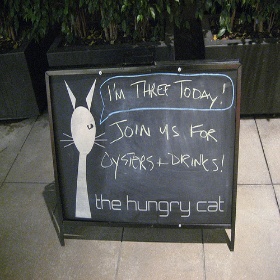 I'm Three Today!
Join us for
Oysters + Drinks!
the hungry cat